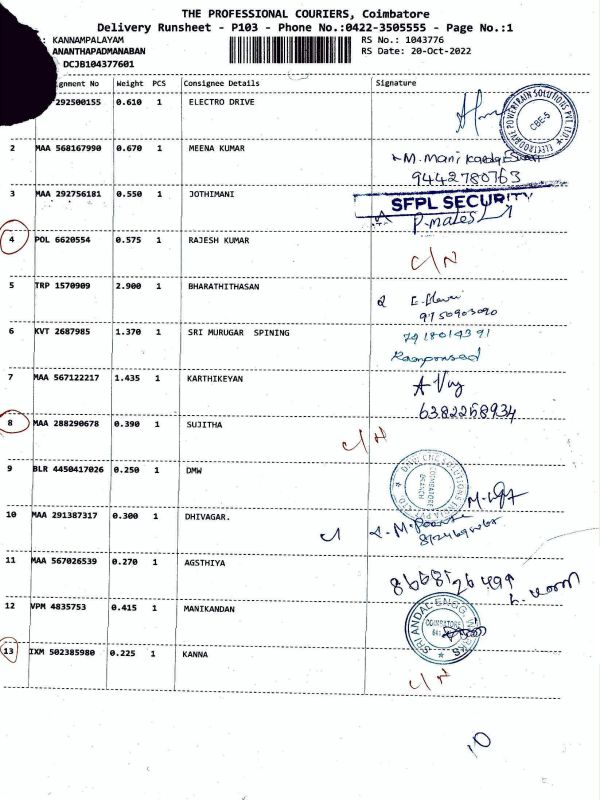 THE PROFESSIONAL COURIERS, Coimbatore
Delivery Runsheet - P103 - Phone No.:0422-3505555 - Page No.:1
: KANNAMPALAYAM RS No.: 1043776
ANANTHAPADMANABAN RS Date: 20-Oct-2022
DCJB104377601
ignment No Weight PCS Consignee Details Signature
292500155 0.610 1 ELECTRO DRIVE
ELECTRODRIVE POWERTRAIN SOLUTIONS PVT. LTD. CBE-5
2 MAA 568167990 0.670 1 MEENA KUMAR
M. Mani
9442780763
3 MAA 292756181 0.550 1 JOTHIMANI
SFPL SECURITY
4 POL 6620554 0.575 1 RAJESH KUMAR
C/N
5 TRP 1570909 2.900 1 BHARATHITHASAN
9750903090
6 KVT 2687985 1.370 1 SRI MURUGAR SPINING
7 MAA 567122217 1.435 1 KARTHIKEYAN
6382258934
8 MAA 288290678 0.390 1 SUJITHA
C/N
9 BLR 4450417026 0.250 1 DMW
DMW CNC SOLUTIONS INDIA PVT LTD COIMBATORE BRANCH
10 MAA 291387317 0.300 1 DHIVAGAR.
11 MAA 567026539 0.270 1 AGSTHIYA
12 VPM 4835753 0.415 1 MANIKANDAN
SRI ANDAL ENGG. WORKS COIMBATORE
13 IXM 502385980 0.225 1 KANNA
C/N
10